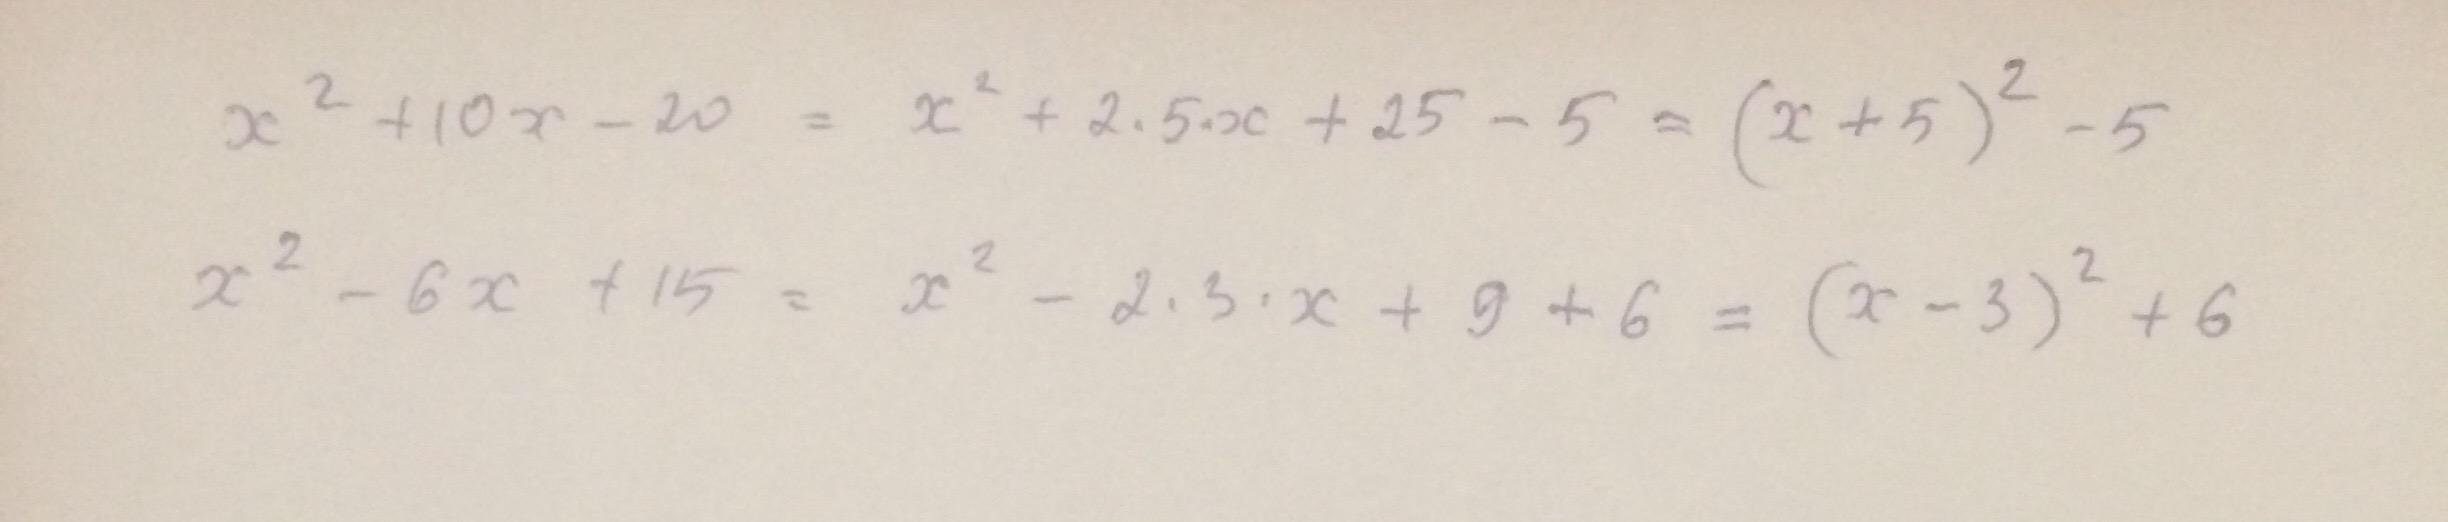 x² + 10x - 20 = x² + 2·5·x + 25 - 5 = (x + 5)² - 5
x² - 6x + 15 = x² - 2·3·x + 9 + 6 = (x - 3)² + 6